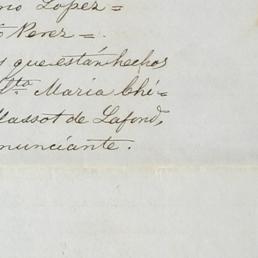 Lopez=
Perez=.
que están hechos
Maria Chi=
Massot de Lafond,
nunciante.